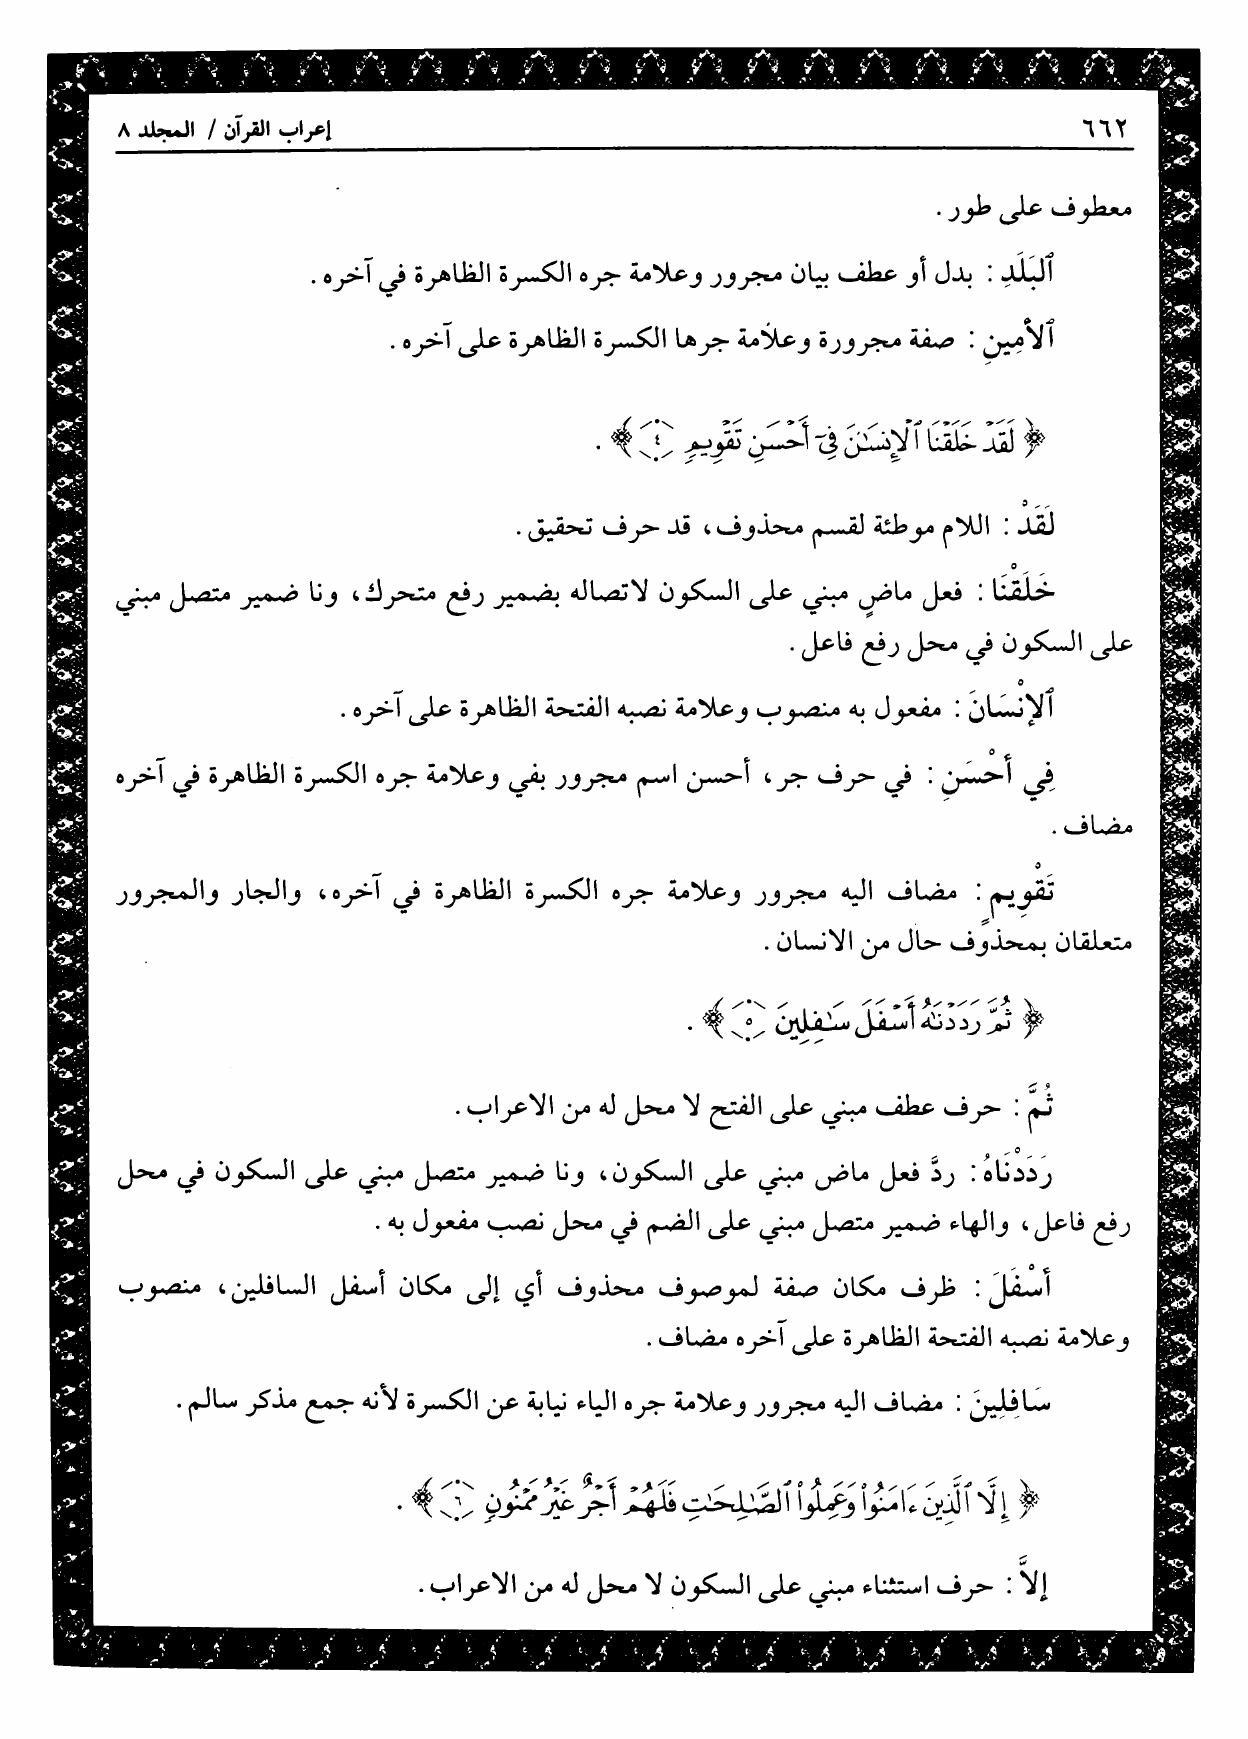 ٦٦٢
إعراب القرآن / المجلد ٨
معطوف على طور .
ٱلْبَلَدِ : بدل أو عطف بيان مجرور وعلامة جره الكسرة الظاهرة في آخره .
ٱلأَمِينِ : صفة مجرورة وعلامة جرها الكسرة الظاهرة على آخره .
﴿ لَقَدْ خَلَقْنَا ٱلْإِنسَٰنَ فِىٓ أَحْسَنِ تَقْوِيمٍ ٤ ﴾ .
لَقَدْ : اللام موطئة لقسم محذوف، قد حرف تحقيق .
خَلَقْنَا : فعل ماضٍ مبني على السكون لاتصاله بضمير رفع متحرك، ونا ضمير متصل مبني
على السكون في محل رفع فاعل .
ٱلإنْسَانَ : مفعول به منصوب وعلامة نصبه الفتحة الظاهرة على آخره .
فِي أَحْسَنِ : في حرف جر، أحسن اسم مجرور بفي وعلامة جره الكسرة الظاهرة في آخره
مضاف .
تَقْوِيمٍ : مضاف اليه مجرور وعلامة جره الكسرة الظاهرة في آخره، والجار والمجرور
متعلقان بمحذوف حال من الانسان .
﴿ ثُمَّ رَدَدْنَٰهُ أَسْفَلَ سَٰفِلِينَ ٥ ﴾ .
ثُمَّ : حرف عطف مبني على الفتح لا محل له من الاعراب .
رَدَدْنَاهُ : ردَّ فعل ماض مبني على السكون، ونا ضمير متصل مبني على السكون في محل
رفع فاعل، والهاء ضمير متصل مبني على الضم في محل نصب مفعول به .
أَسْفَلَ : ظرف مكان صفة لموصوف محذوف أي إلى مكان أسفل السافلين، منصوب
وعلامة نصبه الفتحة الظاهرة على آخره مضاف .
سَافِلِينَ : مضاف اليه مجرور وعلامة جره الياء نيابة عن الكسرة لأنه جمع مذكر سالم .
﴿ إِلَّا ٱلَّذِينَ ءَامَنُوا۟ وَعَمِلُوا۟ ٱلصَّٰلِحَٰتِ فَلَهُمْ أَجْرٌ غَيْرُ مَمْنُونٍ ٦ ﴾ .
إلاَّ : حرف استثناء مبني على السكون لا محل له من الاعراب .